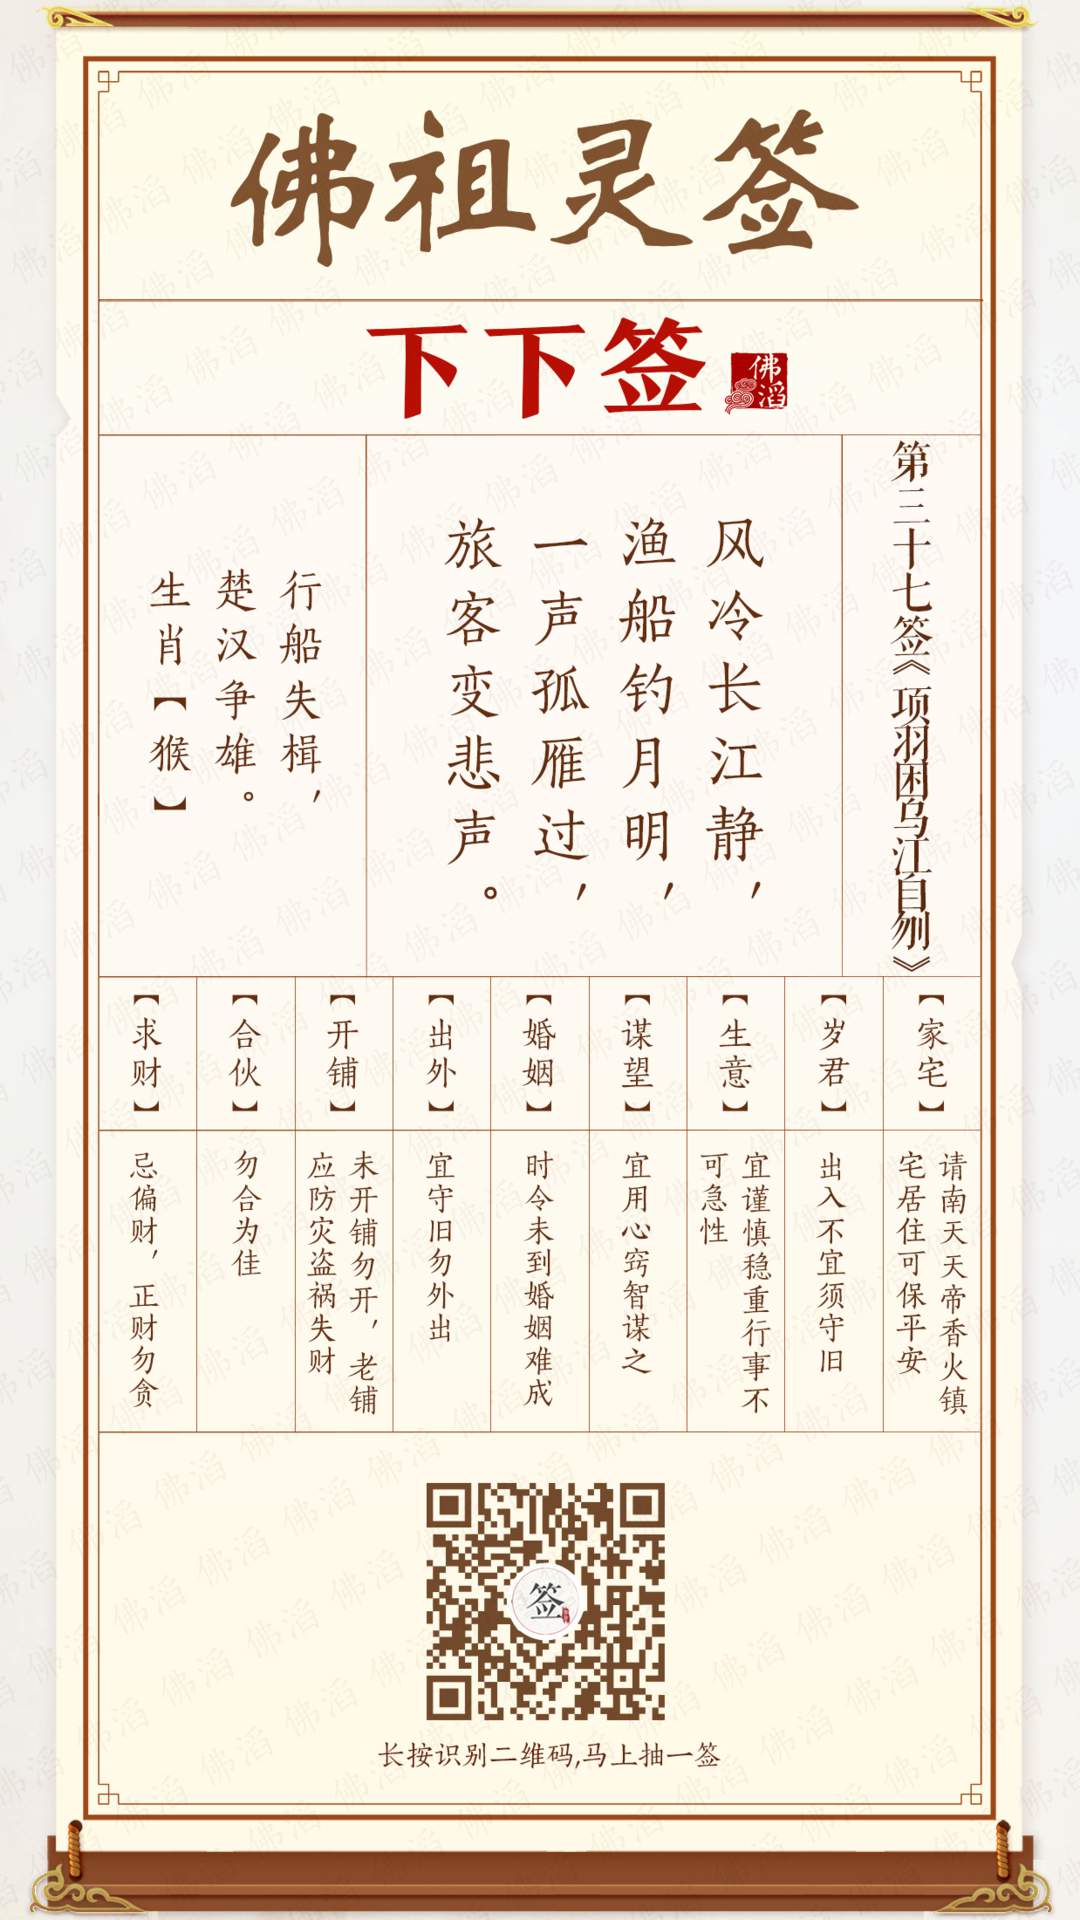 佛祖灵签
下下签
佛滔
第三十七签《项羽困乌江自刎》
风冷长江静，
渔船钓月明，
一声孤雁过，
旅客变悲声。
行船失楫，
楚汉争雄。
生肖【猴】
【家宅】
请南天天帝香火镇
宅居住可保平安
【岁君】
出入不宜须守旧
【生意】
宜谨慎稳重行事不
可急性
【谋望】
宜用心窍智谋之
【婚姻】
时令未到婚姻难成
【出外】
宜守旧勿外出
【开铺】
未开铺勿开，老铺
应防灾盗祸失财
【合伙】
勿合为佳
【求财】
忌偏财，正财勿贪
签
长按识别二维码,马上抽一签